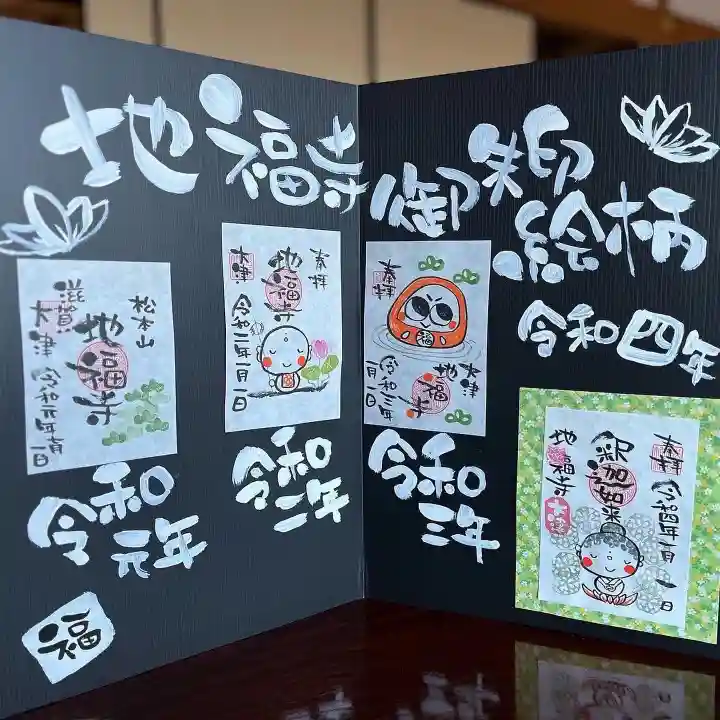 地福寺
御朱印
絵柄
松本山
地福寺
滋賀
大津
令和元年
奉拝
地福寺
大津
令和二年一月一日
令和二年
奉拝
福
大津
地福寺
令和三年
一月一日
令和三年
令和四年
奉拝
令和四年一月一日
釈迦如来
地福寺
令和元年
福